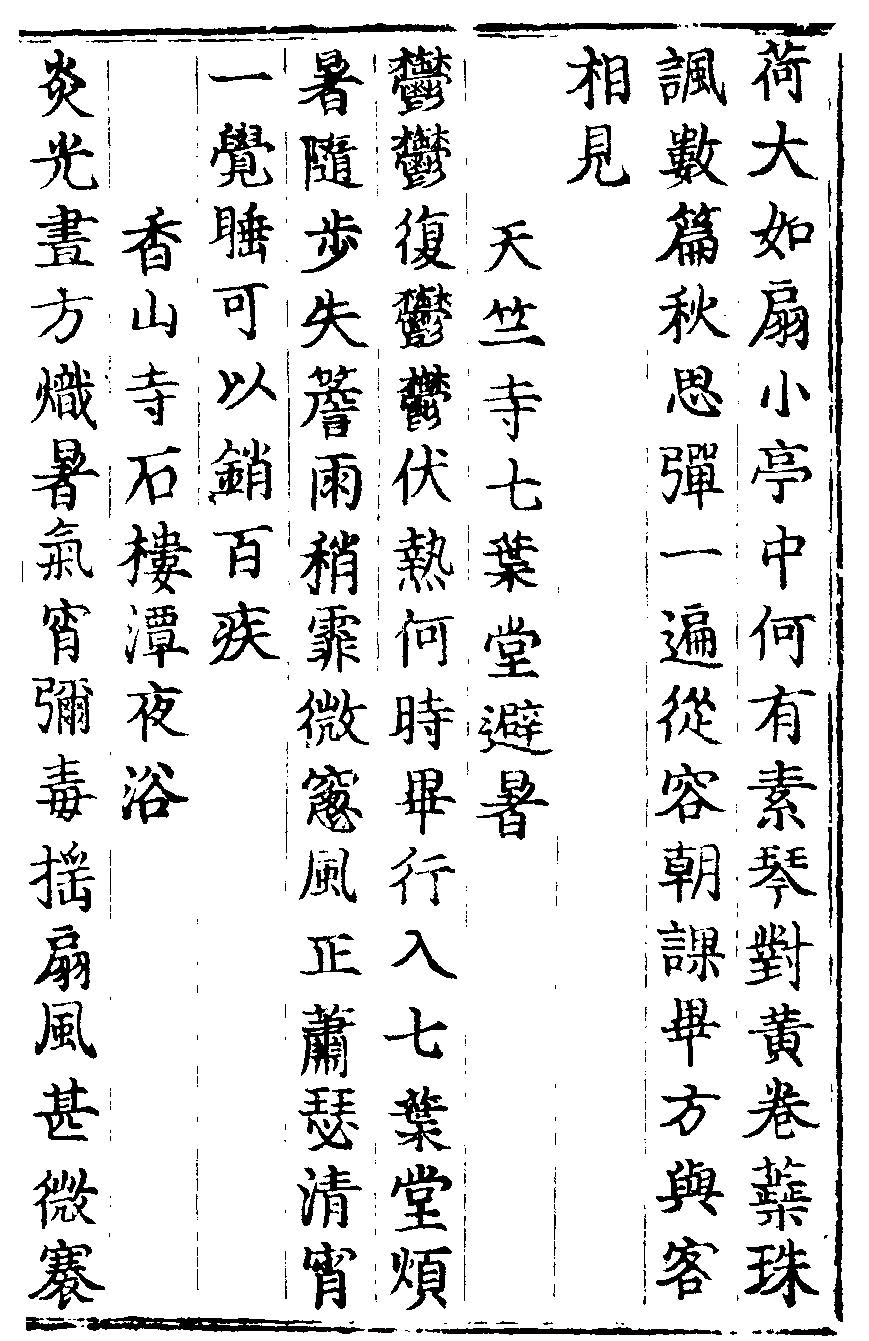 荷大如扇小亭中何有素琴對黃卷蘂珠
諷數篇秋思彈一遍從容朝課畢方與客
相見
天竺寺七葉堂避暑
鬱鬱復鬱鬱伏熱何時畢行入七葉堂煩
暑隨步失簷雨稍霏微窻風正蕭瑟清宵
一覺睡可以銷百疾
香山寺石樓潭夜浴
炎光晝方熾暑氣宵彌毒揺扇風甚微褰